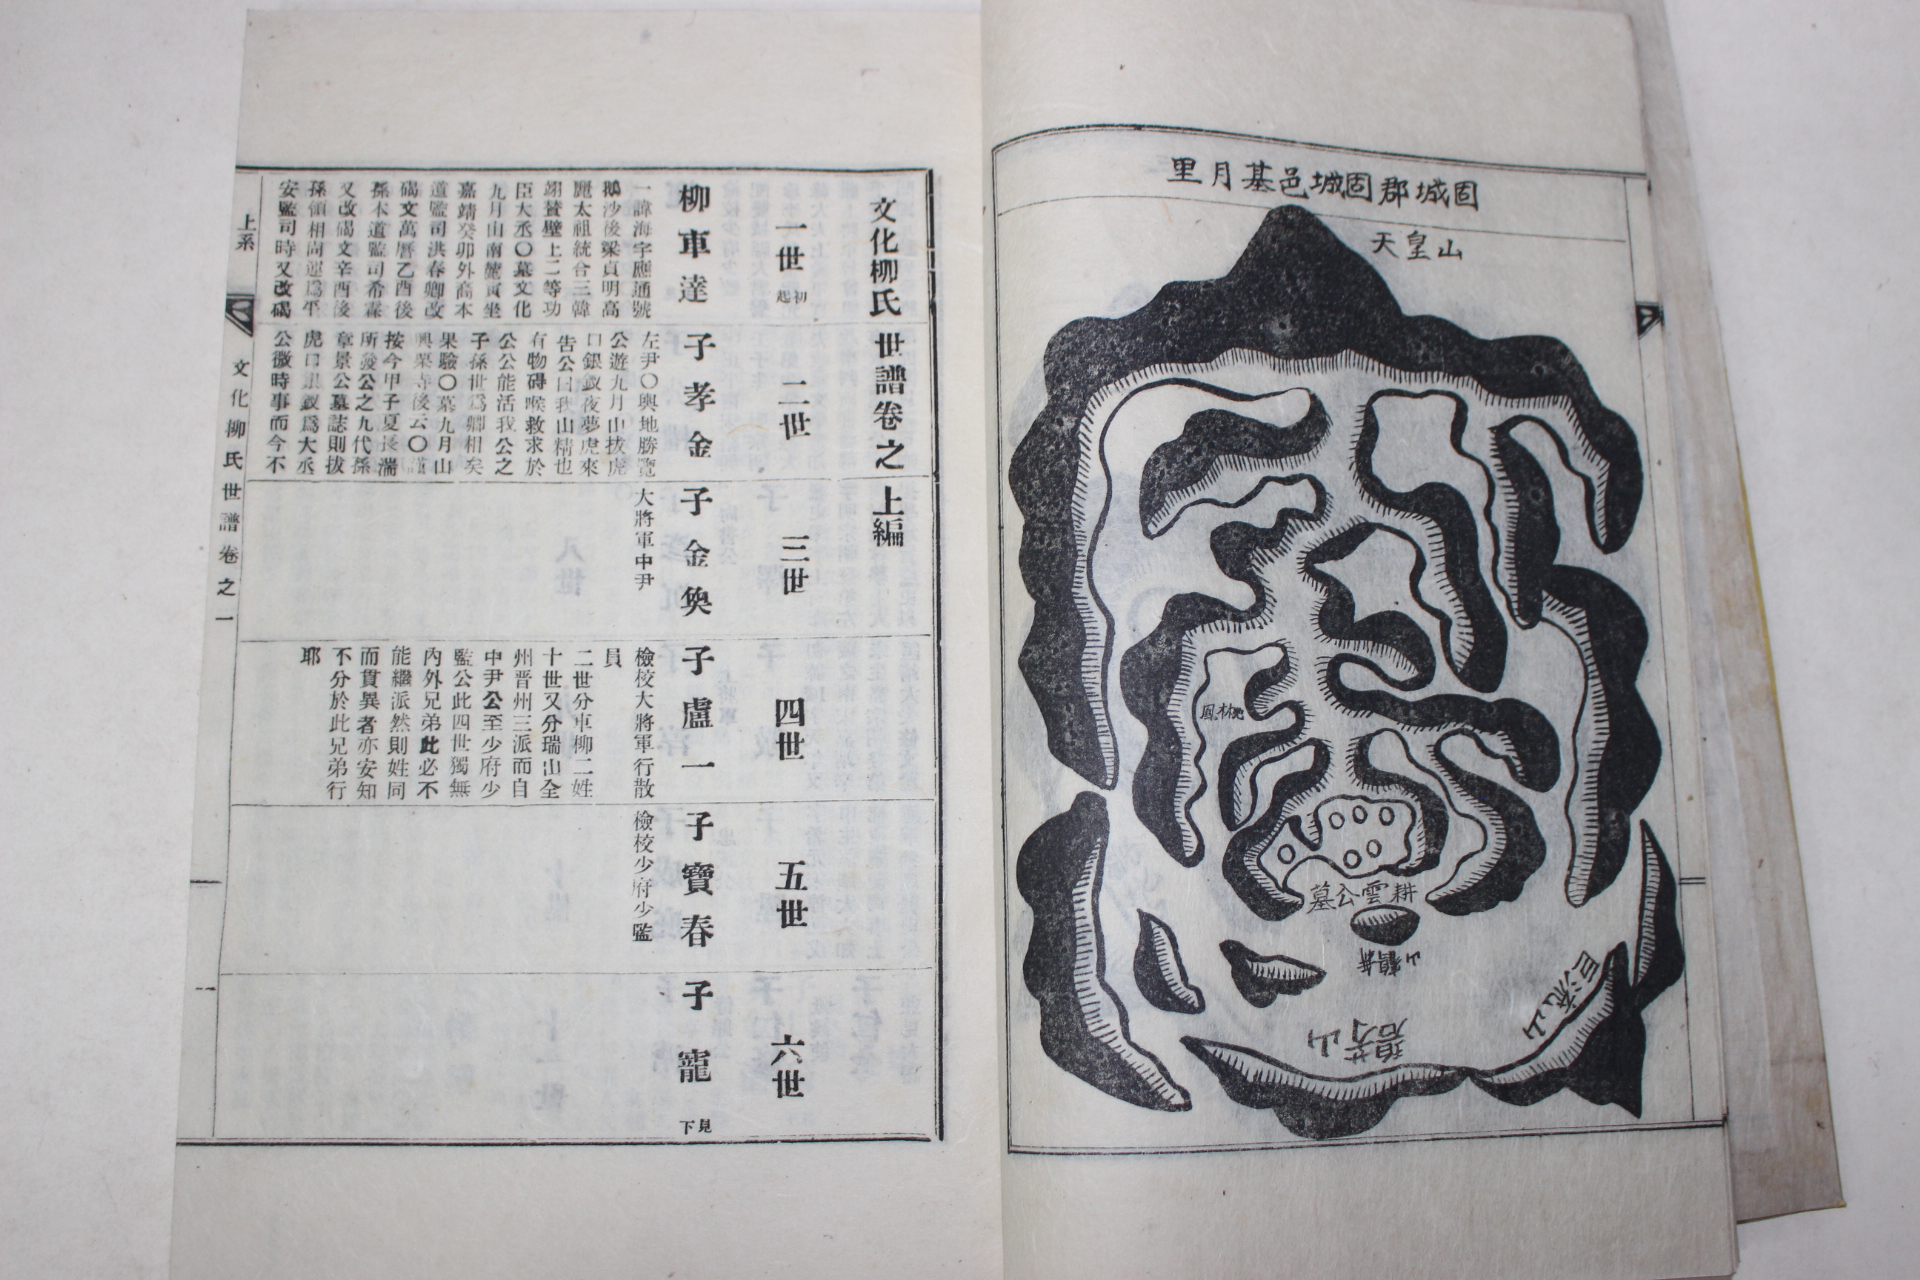 固城郡固城邑基月里
天皇山
耕雲公墓
碧芳山
巨流山
文化柳氏世譜卷之上編
一世 初起
柳車達
一諱海字應通號
鵝沙後梁貞明高
麗太祖統合三韓
翊贊壁上二等功
臣大丞〇墓文化
九月山南麓寅坐
嘉靖癸卯外裔本
道監司洪春卿改
碣文萬曆乙酉後
孫本道監司希霖
又改碣文辛酉後
孫領相尙運爲平
安監司時又改碣
二世
子孝金
左尹〇輿地勝覽
公遊九月山拔虎
口銀釵夜夢虎來
告公曰我山精也
有物碍喉救求於
公公能活我公之
子孫世爲卿相矣
果驗〇墓九月山
興栗寺後云〇謹
按今甲子夏長湍
所發公之九代孫
章景公墓誌則拔
虎口銀釵爲大丞
公微時事而今不
三世
子金奐
大將軍中尹
四世
子盧一
檢校大將軍行散
員
二世分車柳二姓
十世又分瑞山全
州晋州三派而自
中尹公至少府少
監公此四世獨無
內外兄弟此必不
能繼派然則姓同
而貫異者亦安知
不分於此兄弟行
耶
五世
子寶春
檢校少府少監
六世
子寵
見下
上系
文化柳氏世譜卷之一
一